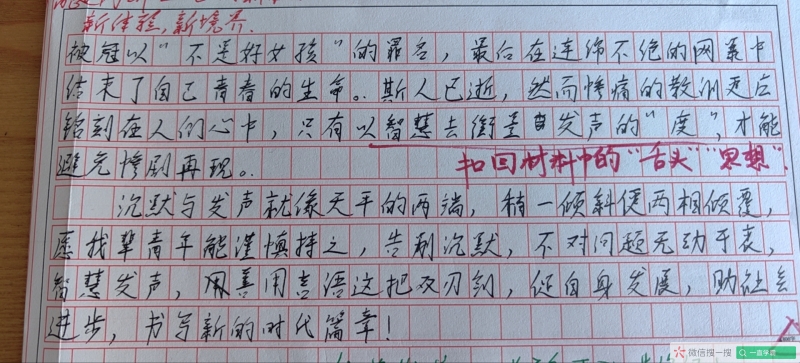 新体验,新境界.
被冠以"不是好女孩"的罪名,最后在连绵不绝的网暴中
结束了自己青春的生命。斯人已逝,然而惨痛的教训更应
铭刻在人们心中,只有以智慧去衡量自发声的"度",才能
避免惨剧再现。
扣回材料中的"舌头""思想".
沉默与发声就像天平的两端,稍一倾斜便两相倾覆,
愿我辈青年能谨慎持之,告别沉默,不对问题无动于衷,
智慧发声,用善用言语这把双刃剑,促自身发展,助社会
进步,书写新的时代篇章!
微信搜一搜 一言学堂